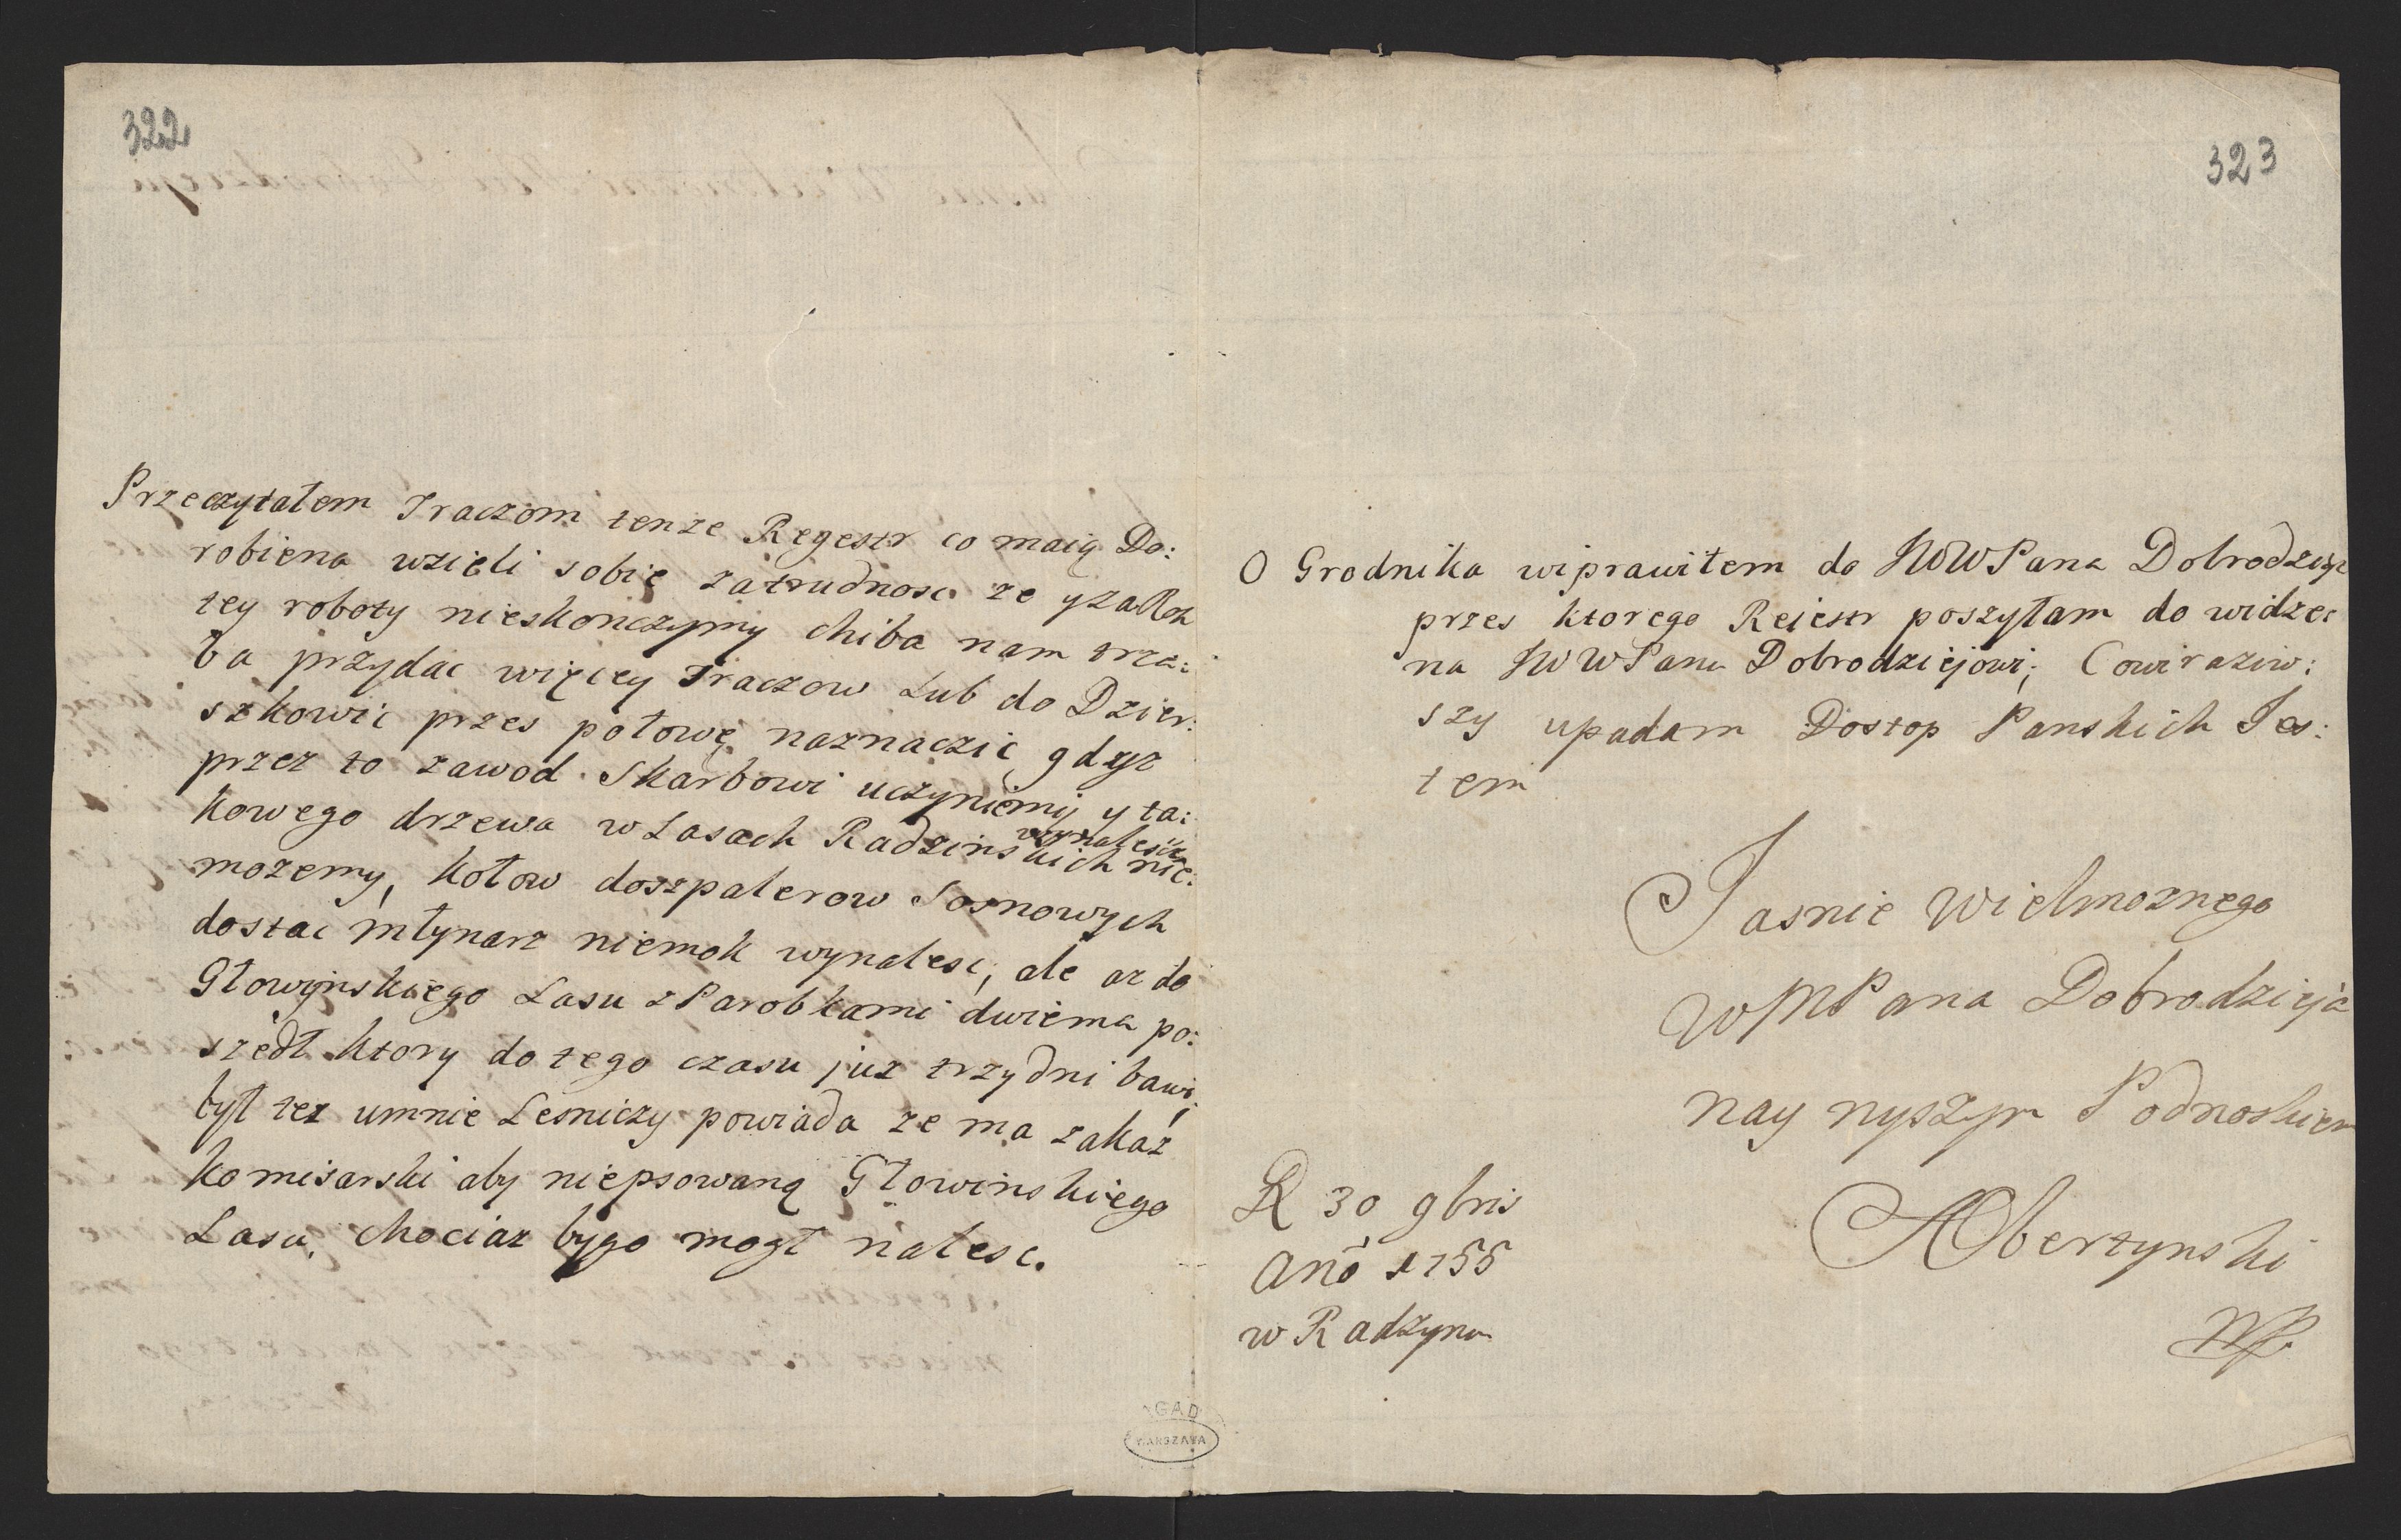 322
Przeczytałem Traczom tenze Regestr co maią Do:
robiena wzieli sobie zatrudnosc ze yzaRok
tey roboty nieskonczymy chiba nam trze:
ba przydac więcey Traczow Lub do Dzier:
szkowic przes połowę naznaczic gdyz
przez to zawod Skarbowi uczyniemy y ta:
kowego drzewa w Lasach Radzinskich nie:
wynalesc
mozemy, kołow doszpalerow Sosnowych
dostac młynarz niemok wynalesc, ale az do
Głowinskiego Lasu z Parobkami dwiema po:
szedł ktory do tego czasu juz trzy dni bawi
był tez umnie Lesniczy powiada ze ma zakaz
komisarski aby niepsowaną Głowinskiego
Lasu, chociaz bygo mogł nalesc.
323
O Grodnika wiprawiłem do JWWPana Dobrodzieja
przes ktorego Reiestr poszyłam do widze:
na JWWPanu Dobrodziejowi; Cowiraziw:
szy upadam Dostop Panskich Jes:
tem
Jasnie Wielmoznego
WMPana Dobrodzieja
nay nyszym Podnoskiem
AObertynski
mp.
D 30 9bris
Ano 1755
w Radzynu
AGAD
WARSZAWA